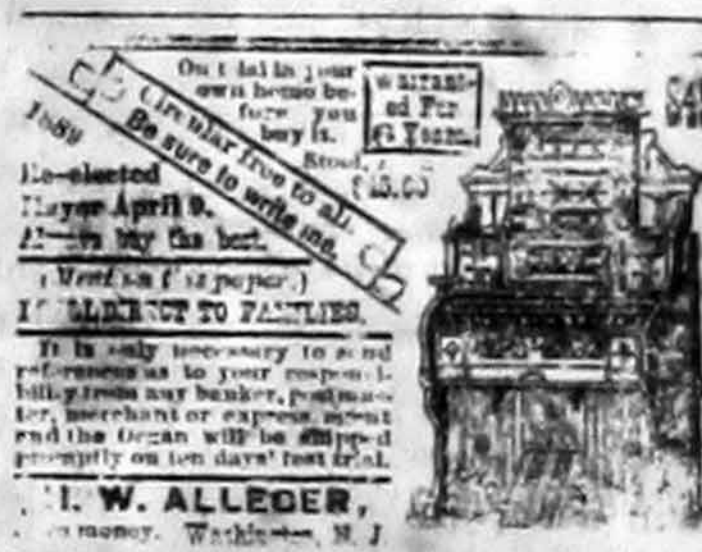 On trial in your
own home be-
fore you
buy it.
Warrant-
ed For
Years.
Circular free to all.
Be sure to write me.
1889
Re-elected
Mayor April 9.
Always buy the best.
(Mention this paper.)
I SELL DIRECT TO FAMILIES.
It is only necessary to send
references as to your responsi-
bility from any banker, postmas-
ter, merchant or express agent
and the Organ will be shipped
promptly on ten days' test trial.
W. ALLEGER,
money. Washington, N. J.